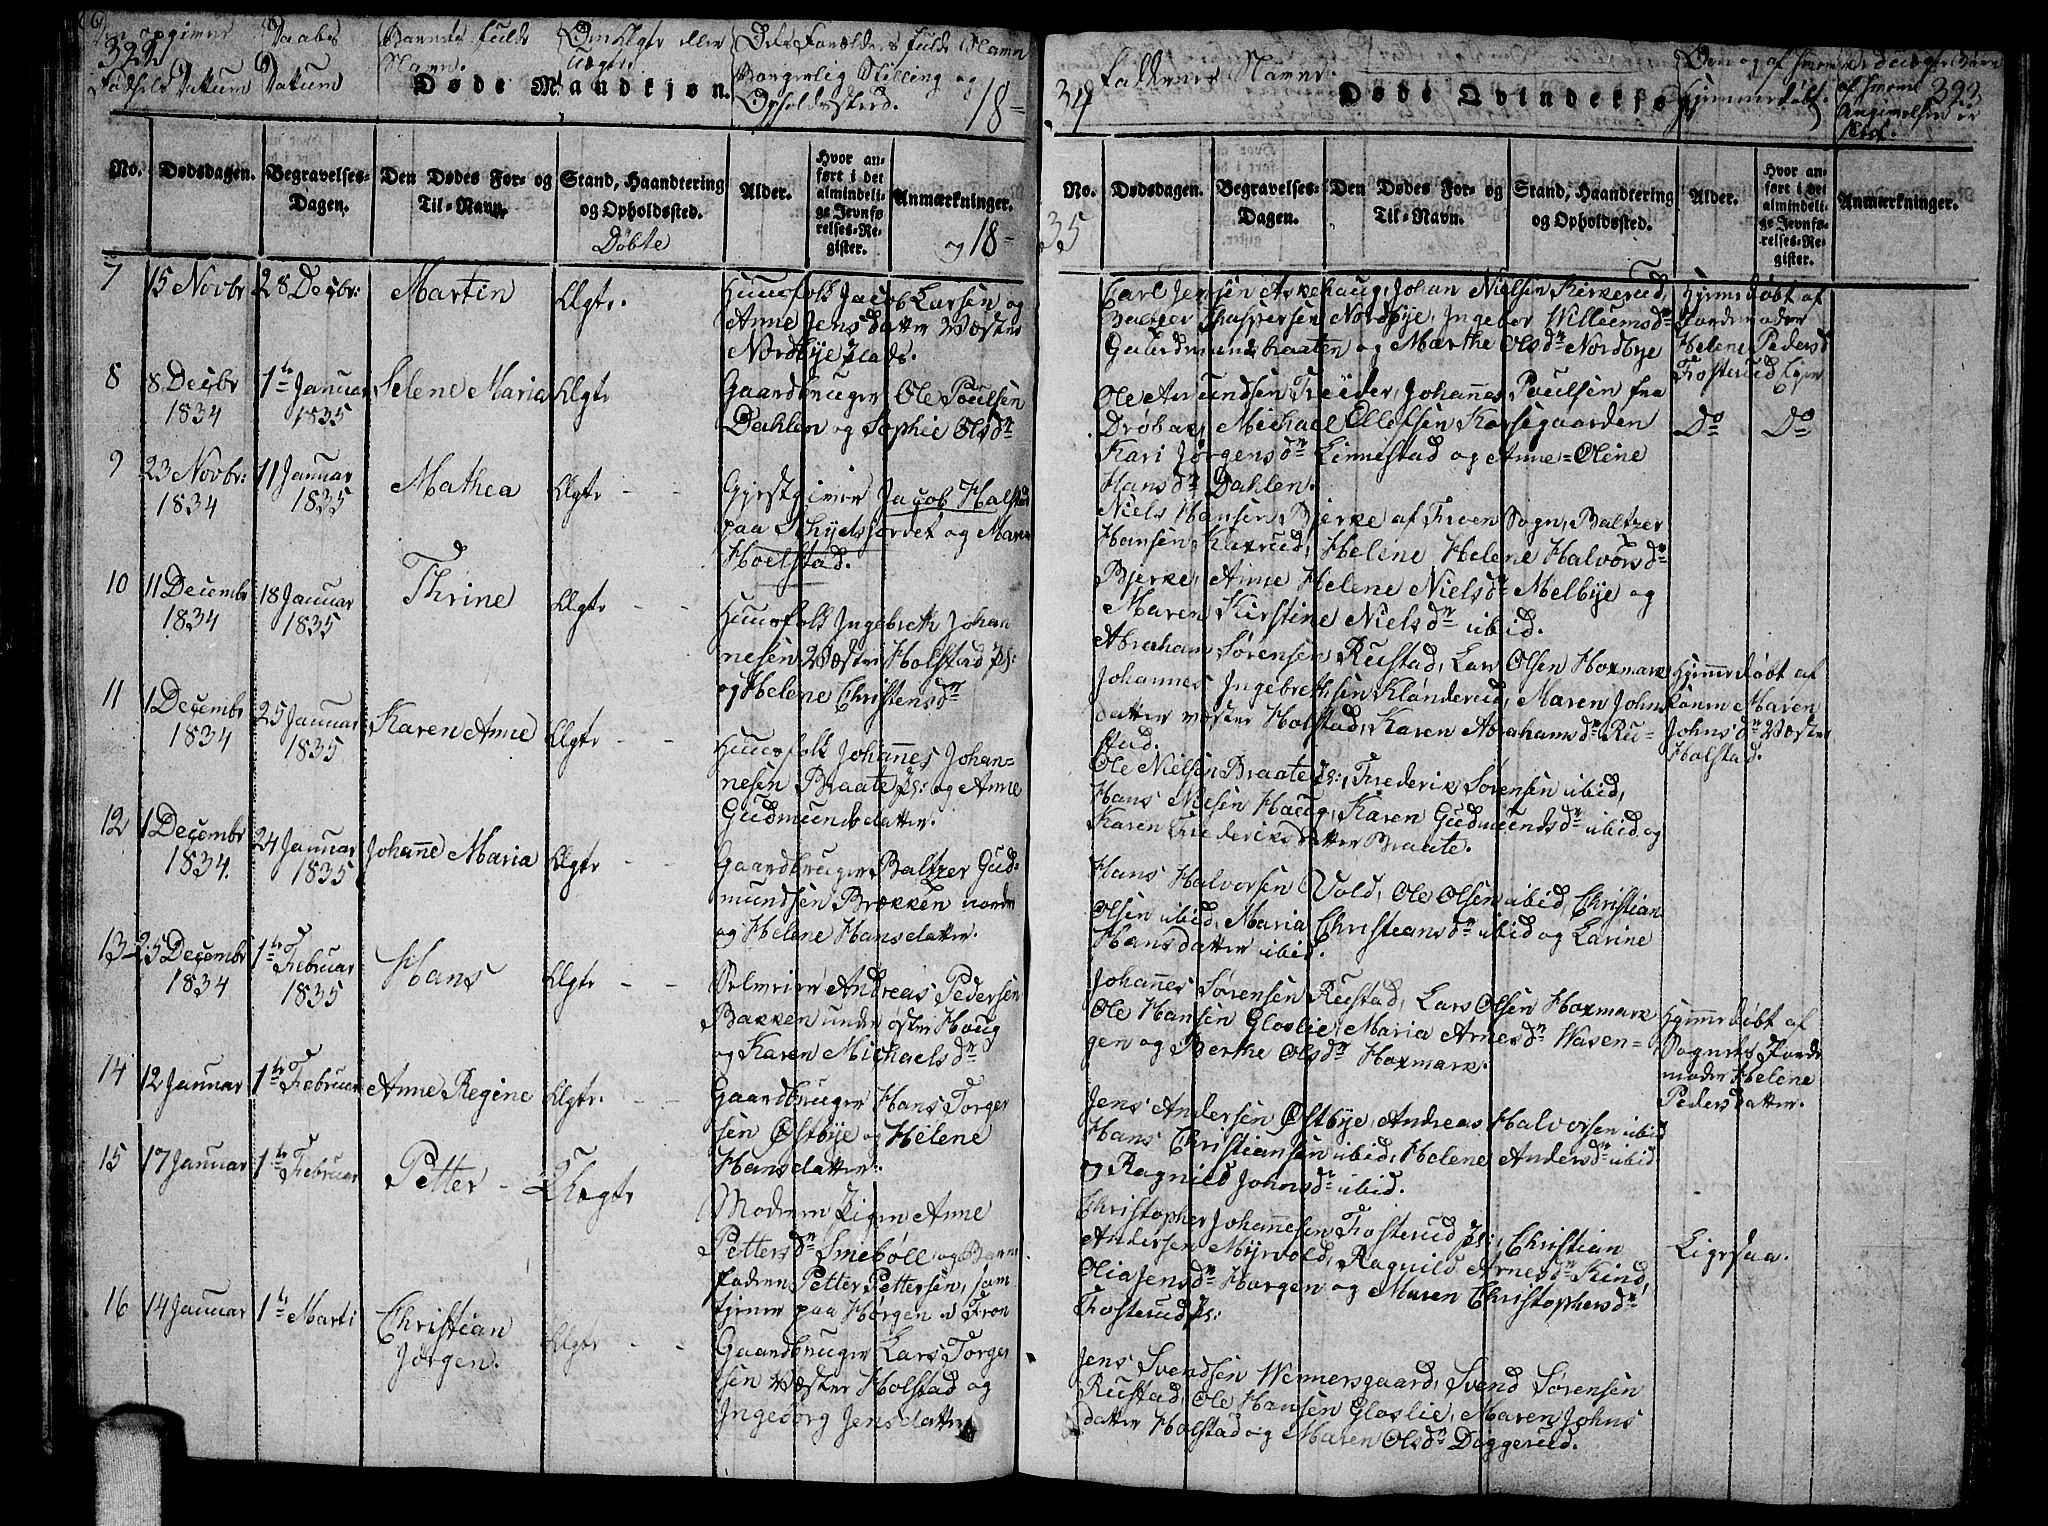 392
Daabs Barnets fulde Om Ægte eller De Forældres fulde Navn
Fødsels Datum Datum Navn. Uægte Borgerlig Stilling og
Opholdssted.
Døde Mandkjøn. 18-
No. Dødsdagen. Begravelses-Dagen. Den Dødes For- og Til-Navn. Stand, Haandtering og Opholdssted. Alder. Hvor anført i det almindelige Jevnførelses-Register. Anmærkninger.
Døbte og 18-
7 15 Novbr 28 Decbr: Martin Ægte. Huusfolk Jacob Larsen og
Anne Jensdatter Vester
Nordbye Plads.
8 8 Decbr 1834 1te Januar 1835 Helene Maria Ægte Gaardbruger Ole Poulsen
Dahlen og Sophie Olsdr
9 23 Novbr: 1834 11 Januar 1835 Mathea Ægte - - Gjestgiver Jacob Holstad
paa Schjelsjordet og Maren
Hoelstad.
10 11 Decembr 1834 18 Januar 1835 Thrine Ægte - - Huusfolk Ingebreth Johan
nesen Vester Holstad Pl:
og Helene Christensdr
11 1 Decembr 1834 25 Januar 1835 Karen Anne Ægte - - Huusfolk Johannes Johan-
nesen Braate Pl: og Anne
Gudmundsdatter.
12 1 Decembr 1834. 24 Januar 1835 Johanne Maria Ægte - - Gaardbruger Baltzer Gud-
mundsen Brekken nordre
og Helene Hansdatter.
13 25 Decembr 1834 1te Februar 1835 Hans Ægte - - Selveier Andreas Pedersen
Bakken under øster Haug
og Karen Michaelsdr
14 12 Januar 1te Februar Anne Regine Ægte. - - Gaardbruger Hans Torger
sen Østbye og Helene
Hansdatter.
15 17 Januar 1te Februar Petter - Uægte Moderen Pigen Anne
Pettersdr Smebøll og Barne
faderen Petter Pettersen, som
tjener paa Horgen i Fron
16 14 Januar 1te Marti Christian Jørgen. Ægte - - Gaardbruger Lars Torger
sen Vester Holstad og
Ingeborg Jensdatter
34 Faddernes Navne. Døde Qvindekjøn. Hjemmedøbt. 393
af hvem
Angivelsen er
skeet.
No. Dødsdagen. Begravelses-Dagen. Den Dødes For- og Til-Navn. Stand, Haandtering og Opholdssted. Alder. Hvor anført i det almindelige Jevnførelses-Register. Anmærkninger.
35
Carl Jensen Askehaug, Johan Nielsen Kirkerud, Hjemmedøbt af
Baltzer Kaspersen Nordbye, Ingebor Willumsdr Jordemoder
Gudmundbraaten og Marthe Olsdr Nordbye Helene Pedersd
Fosterud
Ole Amundsen Treider, Johannes Poulsen fra
Drøbak, Michael Ellefsen Korsegaarden Do Do
Kari Jørgensdr Linnestad og Anne-Oline
Hansdr Dahlen.
Niels Hansen Bjerke af Froen Sogn, Baltzer
Hansen Kaxrud, Helene Helene Halvorsdr
Bjerke, Anne Helene Nielsdr Melbye og
Maren Kirstine Nielsdr ibid.
Abraham Sørensen Rustad, Lars Olsen Hoxmark Hjemmedøbt af
Johannes Ingebrethsen Kländerud, Maren Johns Konen Maren
datter vester Holstad, Karen Abrahamsdr Ru- Johnsdr Vester
stad. Holstad.
Ole Nielsen Braate Pl:, Frederik Sørensen ibid,
Hans Nielsen Haug, Karen Gudmundsdr ibid og
Karen Frederiksdatter Braate.
Hans Halvorsen Vold, Ole Olsen ibid, Christian
Olsen ibid, Maria Christiansdr ibid og Larine
Hansdatter ibid.
Johannes Sørensen Rustad, Lars Olsen Hoxmark Hjemmedøbt af
Ole Hansen Gloslie, Maria Arnesdr Waren- Sognets Jorde
gen og Berthe Olsdr Hoxmark. moder Helene
Pedersdatter.
Jens Andersen Østbye, Andreas Halvorsen ibid
Hans Christiansen ibid, Helene Andersdr ibid
og Ragnild Johnsdr ibid.
Christopher Johannesen Fosterud Pl:, Christian
Andersen Myrvold, Ragnild Arnesdr Kind, Ligesaa.
Olia Jensdr Horgen og Maren Christophersdr
Fosterud Pl:
Jens Svendsen Wennersgaard, Svend Sørensen
Rustad, Ole Hansen Gloslie, Maren Johns
datter Holstad og Maren Olsdr Diggerud.